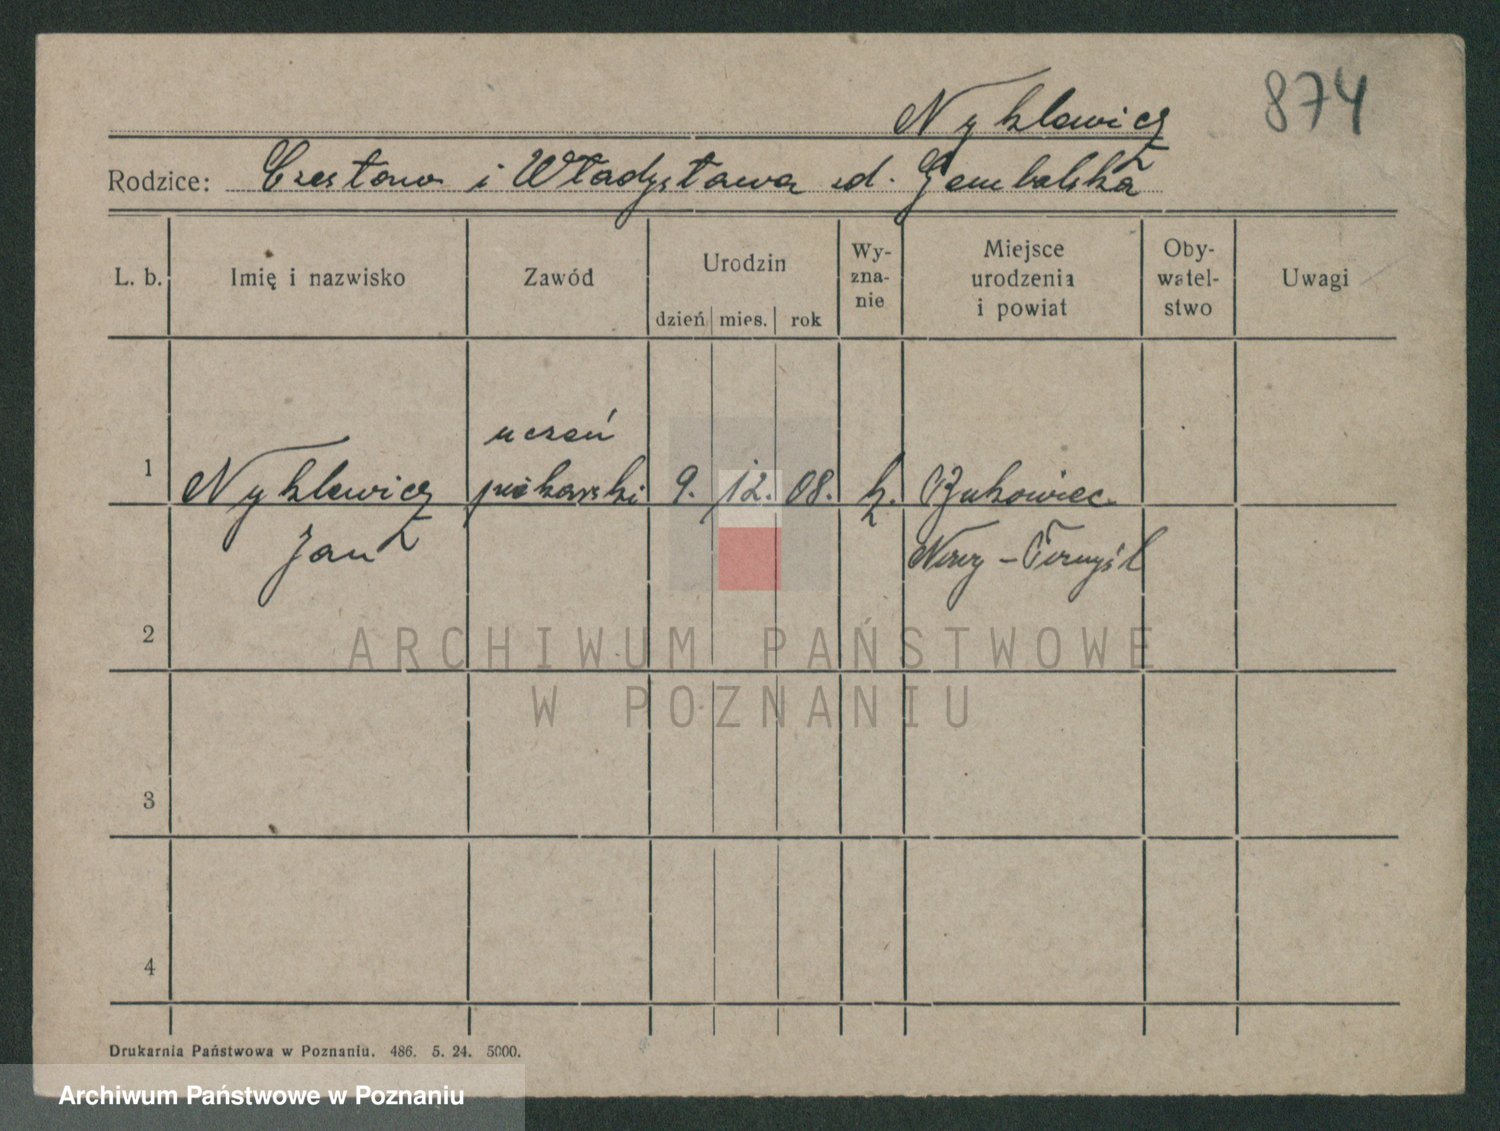 874
Nyklewicz
Rodzice: Czesław i Władysława z d. Gembalska
L. b. Imię i nazwisko Zawód Urodzin dzień mies. rok Wyznanie Miejsce urodzenia i powiat Obywatelstwo Uwagi
uczeń
1 Nyklewicz piekarski 9. 12. 08. k. Bukowiec
Jan Nowy-Tomyśl
2
ARCHIWUM PAŃSTWOWE
W POZNANIU
3
4
Drukarnia Państwowa w Poznaniu. 486. 5. 24. 5000.
Archiwum Państwowe w Poznaniu